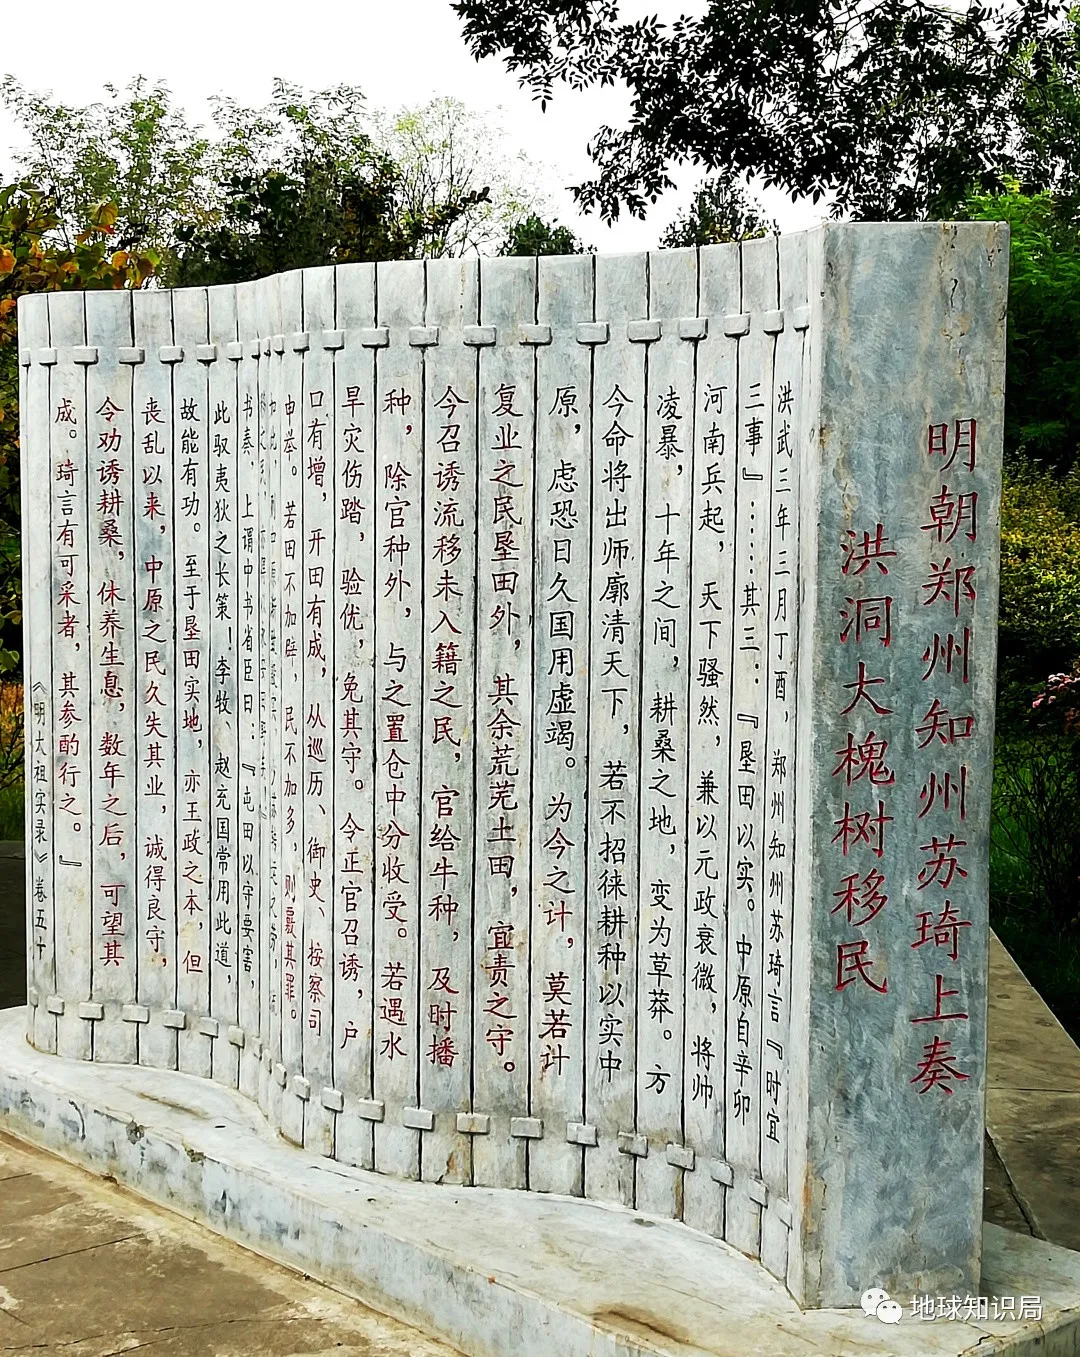 明朝郑州知州苏琦上奏
洪洞大槐树移民
洪武三年三月丁酉，郑州知州苏琦言『时宜
三事』：……其三：『垦田以实。中原自辛卯
河南兵起，天下骚然，兼以元政衰微，将帅
凌暴，十年之间，耕桑之地，变为草莽。方
今命将出师廓清天下，若不招徕耕种以实中
原，虑恐日久国用虚竭。为今之计，莫若计
复业之民垦田外，其余荒芜土田，宜责之守。
今召诱流移未入籍之民，官给牛种，及时播
种，除官种外，与之置仓中分收受。若遇水
旱灾伤踏，验优，免其守。今正官召诱，户
口有增，开田有成，从巡历、御史、按察司
申举。若田不加辟，民不加多，则覈其罪。
如此，则
书奏，上谓中书省臣曰：『屯田以守要害，
此驭夷狄之长策！李牧、赵充国常用此道，
故能有功。至于垦田实地，亦王政之本，但
丧乱以来，中原之民久失其业，诚得良守，
令劝诱耕桑，休养生息，数年之后，可望其
成。琦言有可采者，其参酌行之。』
《明大祖实录》卷五十
地球知识局